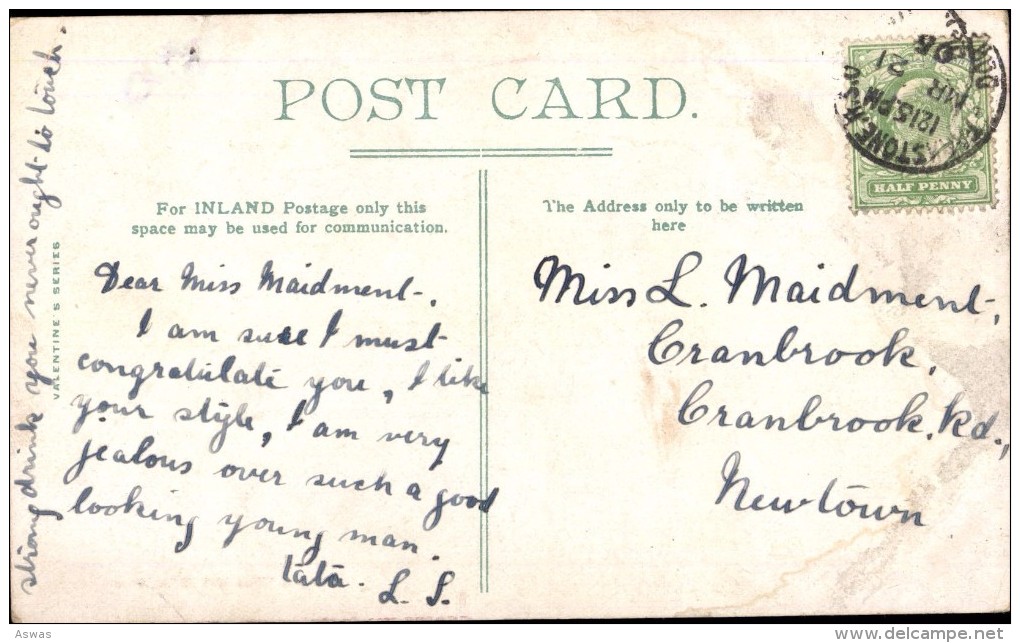 POST CARD.
For INLAND Postage only this
space may be used for communication.
The Address only to be written
here
HALF PENNY
PARKSTONE. R.S.O
12 15 PM
MR 21
06
VALENTINE'S SERIES
Dear Miss Maidment,
I am sure I must
congratulate you, I like
your style, I am very
jealous over such a good
looking young man.
tata. L. S.
strong drink you never ought to touch.
Miss L. Maidment,
Cranbrook,
Cranbrook. Rd.,
Newtown
Aswas
www.delcampe.net